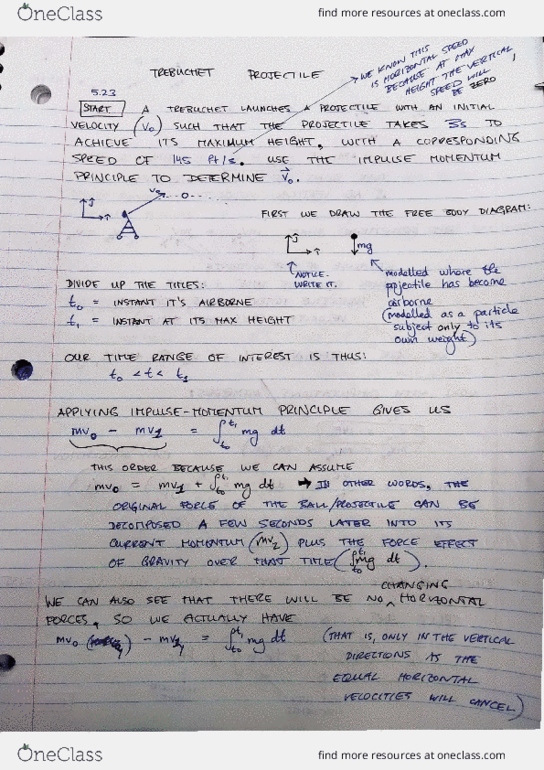 OneClass
find more resources at oneclass.com
TREBUCHET PROJECTILE
WE KNOW THIS
IS HORIZONTAL SPEED
BECAUSE AT MAX
HEIGHT THE VERTICAL
SPEED WILL
BE ZERO
5.23
START A TREBUCHET LAUNCHES A PROJECTILE WITH AN INITIAL
VELOCITY (V₀) SUCH THAT THE PROJECTILE TAKES 3s TO
ACHIEVE ITS MAXIMUM HEIGHT, WITH A CORRESPONDING
SPEED OF 145 ft/s. USE THE IMPULSE MOMENTUM
PRINCIPLE TO DETERMINE v⃗₀.
FIRST WE DRAW THE FREE BODY DIAGRAM:
mg
NOTICE.
WRITE IT.
modelled where the
projectile has become
airborne
(modelled as a particle
subject only to its
own weight)
DIVIDE UP THE TIMES:
t₀ = INSTANT IT'S AIRBORNE
t₁ = INSTANT AT ITS MAX HEIGHT
OUR TIME RANGE OF INTEREST IS THUS:
t₀ < t < t₁
APPLYING IMPULSE-MOMENTUM PRINCIPLE GIVES US
mv₀ - mv₁ = ∫t₀^t₁ mg dt
THIS ORDER BECAUSE WE CAN ASSUME
mv₀ = mv₁ + ∫t₀^t₁ mg dt → IN OTHER WORDS, THE
ORIGINAL FORCE OF THE BALL/PROJECTILE CAN BE
DECOMPOSED A FEW SECONDS LATER INTO ITS
CURRENT MOMENTUM (mv₂) PLUS THE FORCE EFFECT
OF GRAVITY OVER THAT TIME (∫t₀^t₁ mg dt).
WE CAN ALSO SEE THAT THERE WILL BE NO CHANGING HORIZONTAL
FORCES, SO WE ACTUALLY HAVE
mv₀ - mv₁y = ∫t₀^t₁ mg dt (THAT IS, ONLY IN THE VERTICAL
DIRECTIONS AS THE
EQUAL HORIZONTAL
VELOCITIES WILL CANCEL)
OneClass
find more resources at oneclass.com